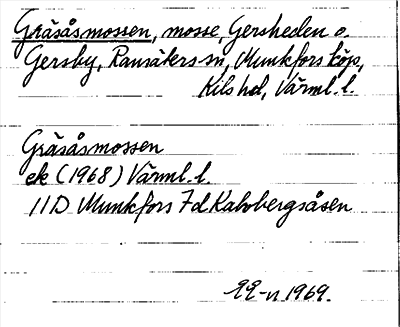 Gräsåsmossen, mosse, Gersheden o.
Gersby, Ransäters sn, Munkfors köp,
Kils hd, Värml. l.
Gräsåsmossen
ek (1968) Värml. l.
11D Munkfors 7d Kalvbergsåsen
1969.